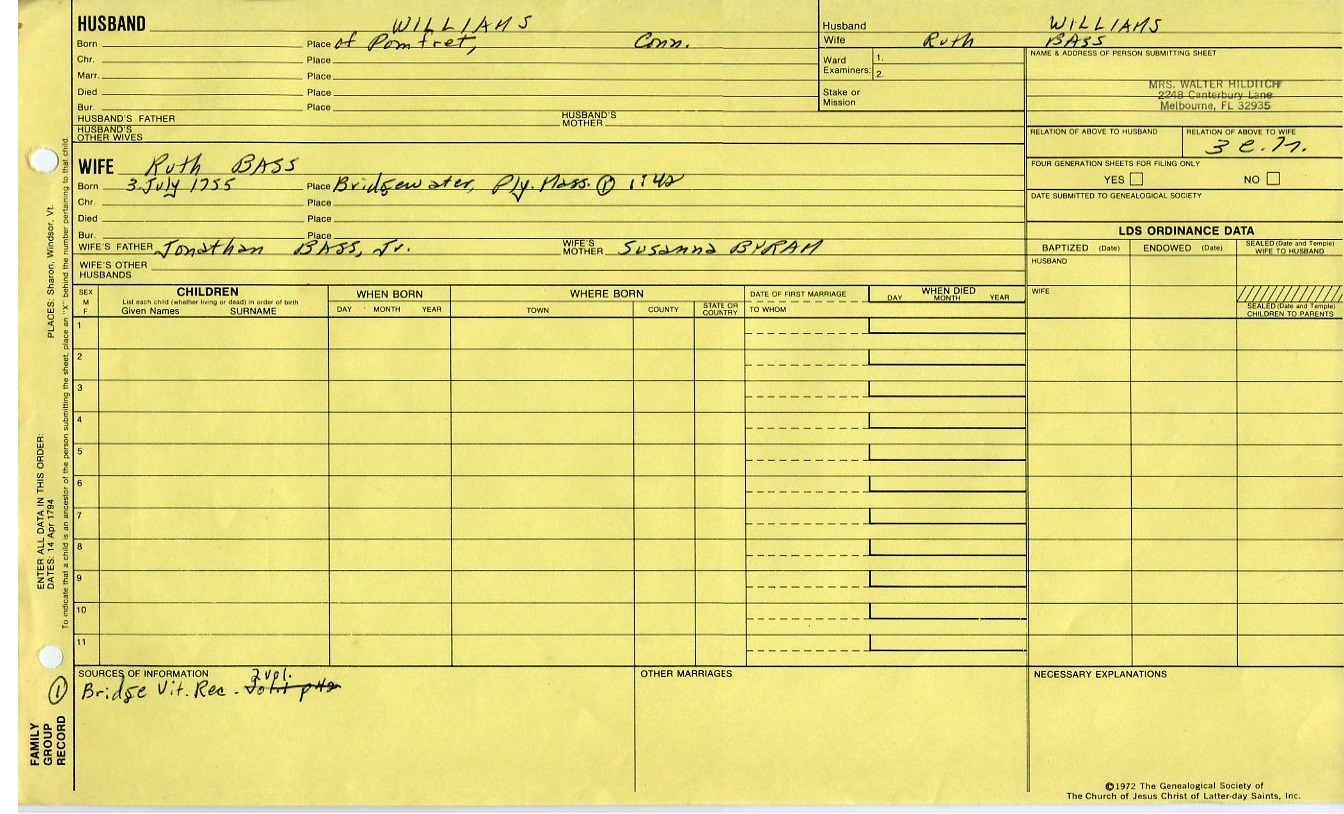 HUSBAND WILLIAMS
Born Place of Pomfret, Conn.
Chr. Place
Marr. Place
Died Place
Bur. Place
HUSBAND'S FATHER HUSBAND'S MOTHER
HUSBAND'S OTHER WIVES
Husband WILLIAMS
Wife Ruth BASS
Ward Examiners: 1.
2.
Stake or Mission
NAME & ADDRESS OF PERSON SUBMITTING SHEET
MRS. WALTER HILDITCH
2248 Canterbury Lane
Melbourne, FL 32935
RELATION OF ABOVE TO HUSBAND RELATION OF ABOVE TO WIFE
3 C.
FOUR GENERATION SHEETS FOR FILING ONLY
YES NO
DATE SUBMITTED TO GENEALOGICAL SOCIETY
WIFE Ruth BASS
Born 3 July 1755 Place Bridgewater, Ply. Mass. ① 1 P42
Chr. Place
Died Place
Bur. Place
WIFE'S FATHER Jonathan BASS, Jr. WIFE'S MOTHER Susanna BYRAM
WIFE'S OTHER HUSBANDS
LDS ORDINANCE DATA
BAPTIZED (Date) ENDOWED (Date) SEALED (Date and Temple) WIFE TO HUSBAND
HUSBAND
WIFE
SEALED (Date and Temple) CHILDREN TO PARENTS
SEX M F
CHILDREN
List each child (whether living or dead) in order of birth
Given Names SURNAME
WHEN BORN
DAY MONTH YEAR
WHERE BORN
TOWN COUNTY STATE OR COUNTRY
DATE OF FIRST MARRIAGE
TO WHOM
WHEN DIED
DAY MONTH YEAR
1
2
3
4
5
6
7
8
9
10
11
SOURCES OF INFORMATION
2 vol.
① Bridge Vit. Rec. - p42
OTHER MARRIAGES
NECESSARY EXPLANATIONS
©1972 The Genealogical Society of
The Church of Jesus Christ of Latter-day Saints, Inc.
FAMILY GROUP RECORD
ENTER ALL DATA IN THIS ORDER:
DATES: 14 Apr 1794 PLACES: Sharon, Windsor, Vt.
To indicate that a child is an ancestor of the person submitting the sheet, place an "X" behind the number pertaining to that child.